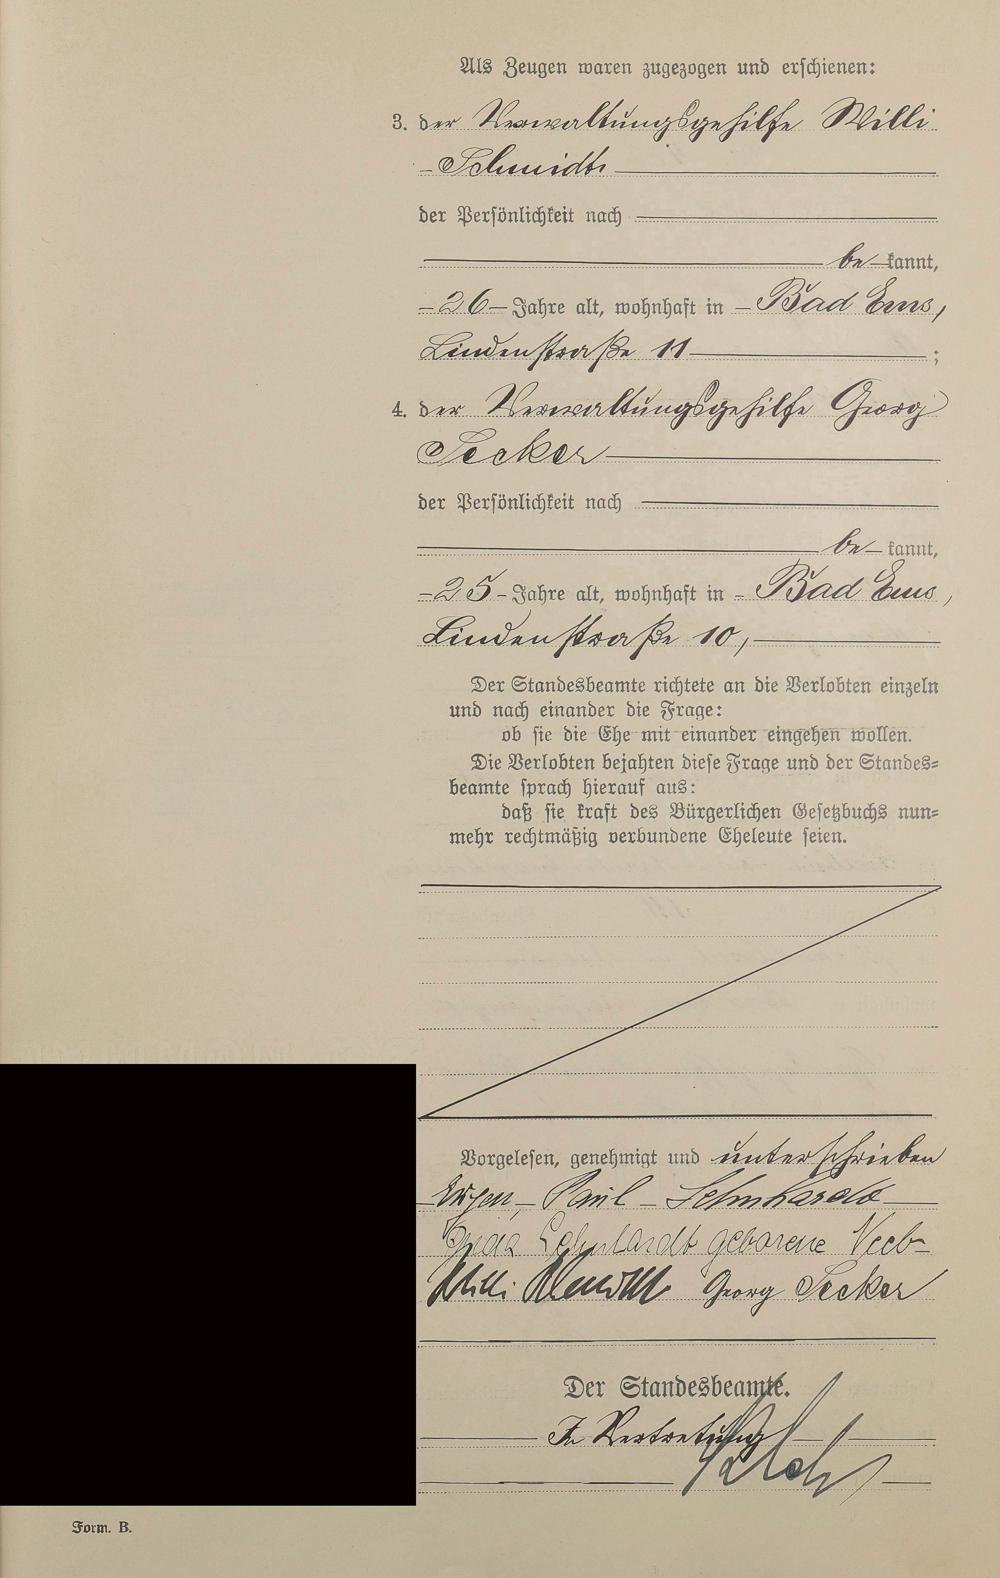 Als Zeugen waren zugezogen und erschienen:
3. der Verwaltungsgehilfe Willi
Schmidt
der Persönlichkeit nach
be kannt,
26 Jahre alt, wohnhaft in Bad Ems,
Lindenstraße 11 ;
4. der Verwaltungsgehilfe Georg
Secker
der Persönlichkeit nach
be kannt,
25 Jahre alt, wohnhaft in Bad Ems,
Lindenstraße 10,
Der Standesbeamte richtete an die Verlobten einzeln
und nach einander die Frage:
ob sie die Ehe mit einander eingehen wollen.
Die Verlobten bejahten diese Frage und der Standes=
beamte sprach hierauf aus:
daß sie kraft des Bürgerlichen Gesetzbuchs nun=
mehr rechtmäßig verbundene Eheleute seien.
Vorgelesen, genehmigt und unterschrieben
Eugen Paul
geborene
Willi Schmidt Georg Secker
Der Standesbeamte.
In Vertretung
Form. B.